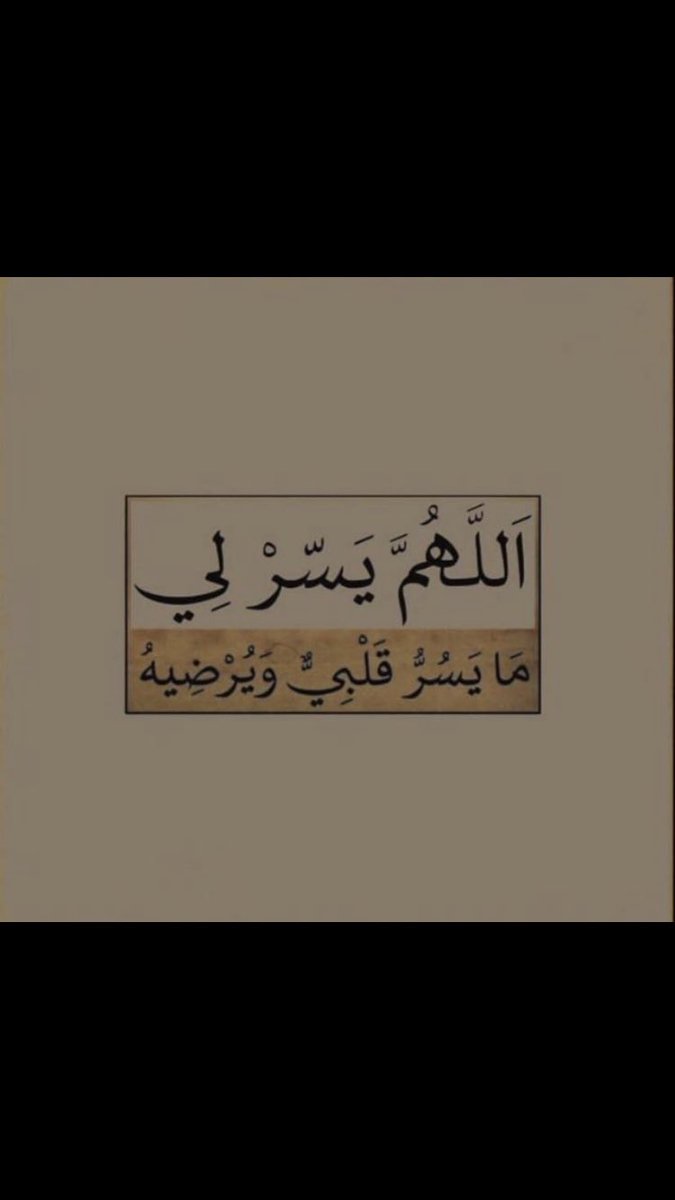 اَللَّهُمَّ يَسّرْ لِي
مَا يَسُرُّ قَلْبِيٌّ وَيُرْضِيهُ